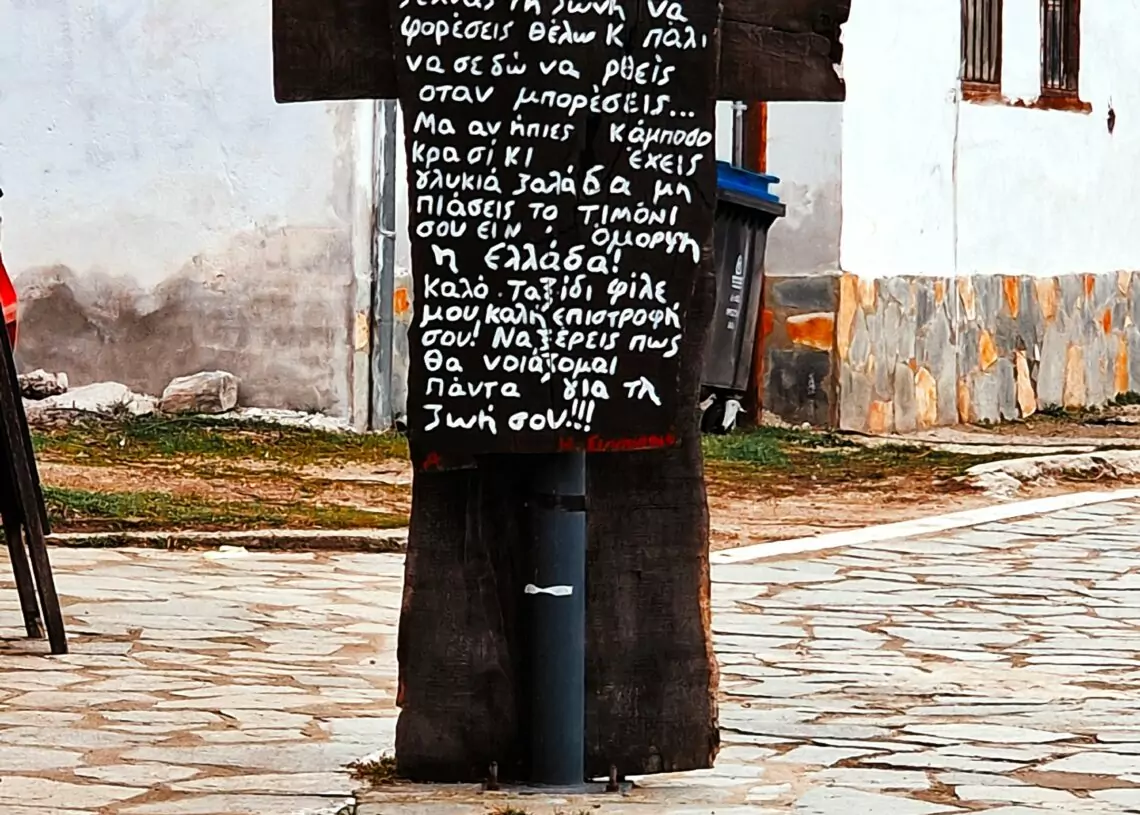 ξεχνάς τη ζωνη να
φορέσεις θέλω κ πάλι
να σε δω να ρθεις
οταν μπορέσεις...
Μα αν ήπιες κάμποσο
κρασί κι έχεις
γλυκιά ζαλάδα μη
πιάσεις το τιμόνι
σου ειν' όμορφη
η Ελλάδα!
καλό ταξίδι φίλε
μου, καλή επιστροφή
σου! Να ξέρεις πως
θα νοιάζομαι
πάντα για τη
ζωή σου!!!